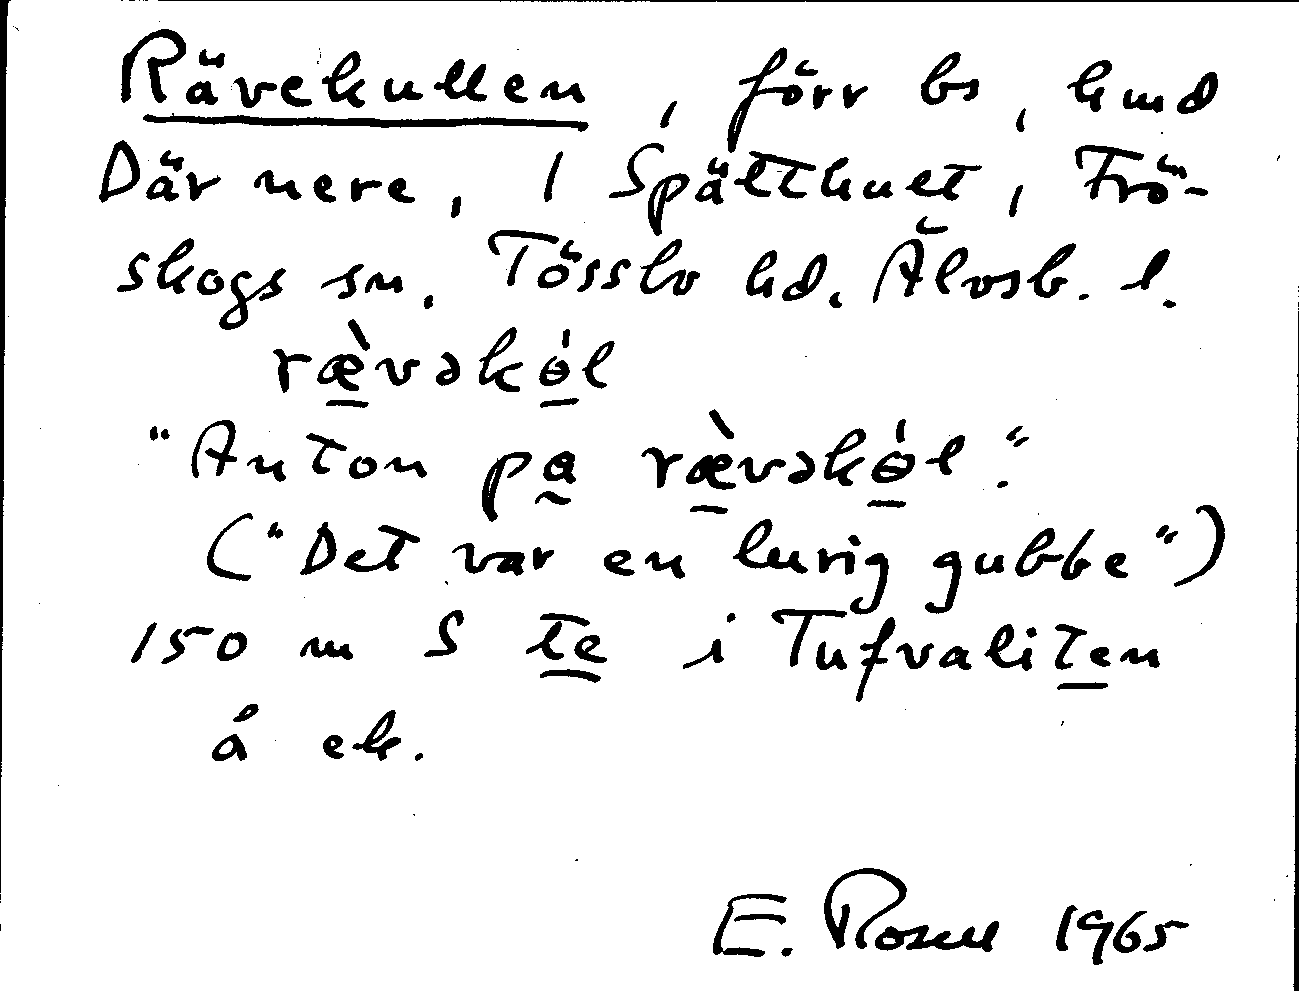 Rävekullen, förr bs, kmd
Där nere, 1 Spälthult, Frö-
skogs sn, Tössbo hd. Älvsb. l.
ræ̀vəkɵ́l
"Anton pa ræ̀vəkɵ́l."
("Det var en lurig gubbe")
150 m S te i Tufvaliten
å ek.
E. Rosell 1965